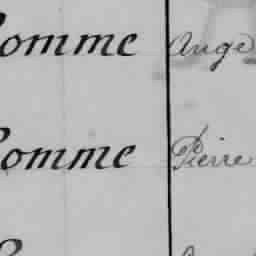 Comme Ange
Comme Pierre